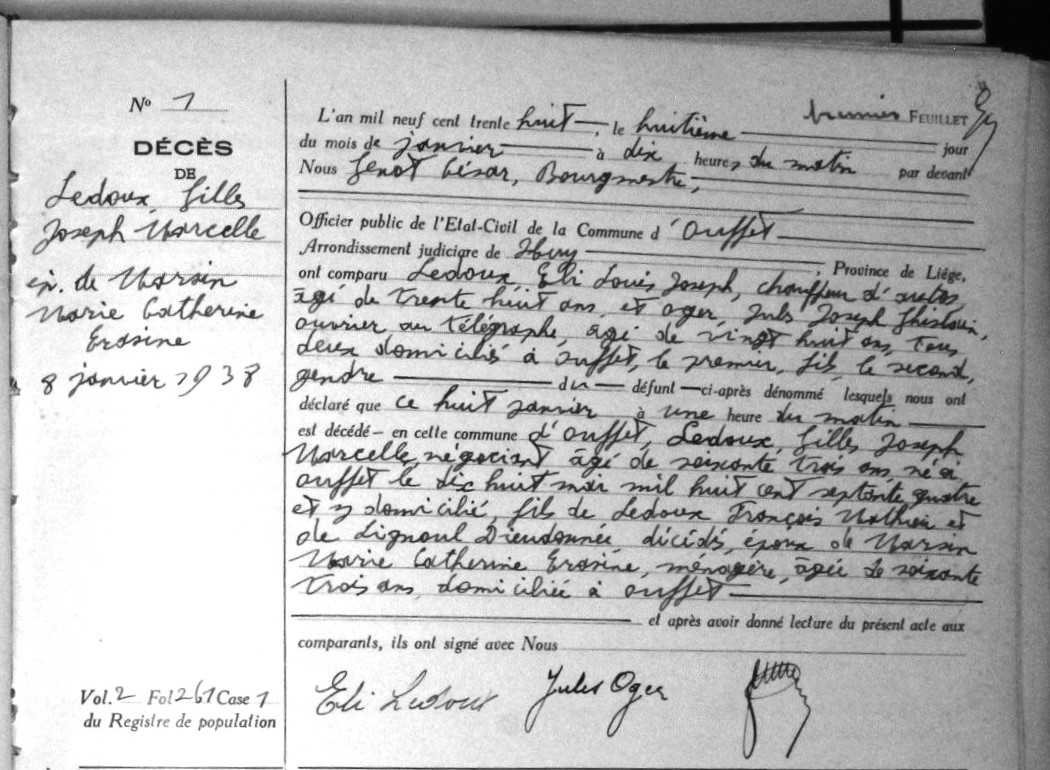 Nº 1
DÉCÈS
DE
Ledoux, Gilles
Joseph Marcelle
ép. de Marsin
Marie Catherine
Erasine
8 janvier 1938
Vol. 2 Fol 261 Case 1
du Registre de population
premier FEUILLET
L'an mil neuf cent trente huit, le huitième jour
du mois de janvier à dix heures du matin par devant
Nous Genot César, Bourgmestre,
Officier public de l'Etat-Civil de la Commune d'Ouffet
Arrondissement judiciaire de Huy, Province de Liége,
ont comparu Ledoux, Eli Louis Joseph, chauffeur d'autos,
âgé de trente huit ans, et Oger, Jules Joseph Ghislain,
ouvrier au télégraphe, âgé de vingt huit ans, tous
deux domiciliés à Ouffet, le premier, fils, le second,
gendre du défunt ci-après dénommé lesquels nous ont
déclaré que ce huit janvier à une heure du matin
est décédé en cette commune d'Ouffet, Ledoux, Gilles Joseph
Marcelle, négociant âgé de soixante trois ans, né à
Ouffet le dix huit mai mil huit cent septante quatre
et y domicilié, fils de Ledoux François Mathieu et
de Lignoul Dieudonnée décédés, époux de Marsin
Marie Catherine Erasine, ménagère, âgée de soixante
trois ans, domiciliée à Ouffet
et après avoir donné lecture du présent acte aux
comparants, ils ont signé avec Nous
Eli Ledoux Jules Oger